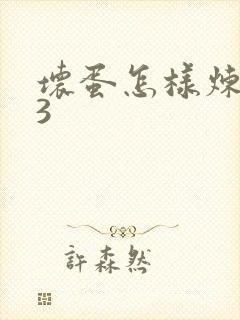 壞蛋怎樣煉
3
許森然